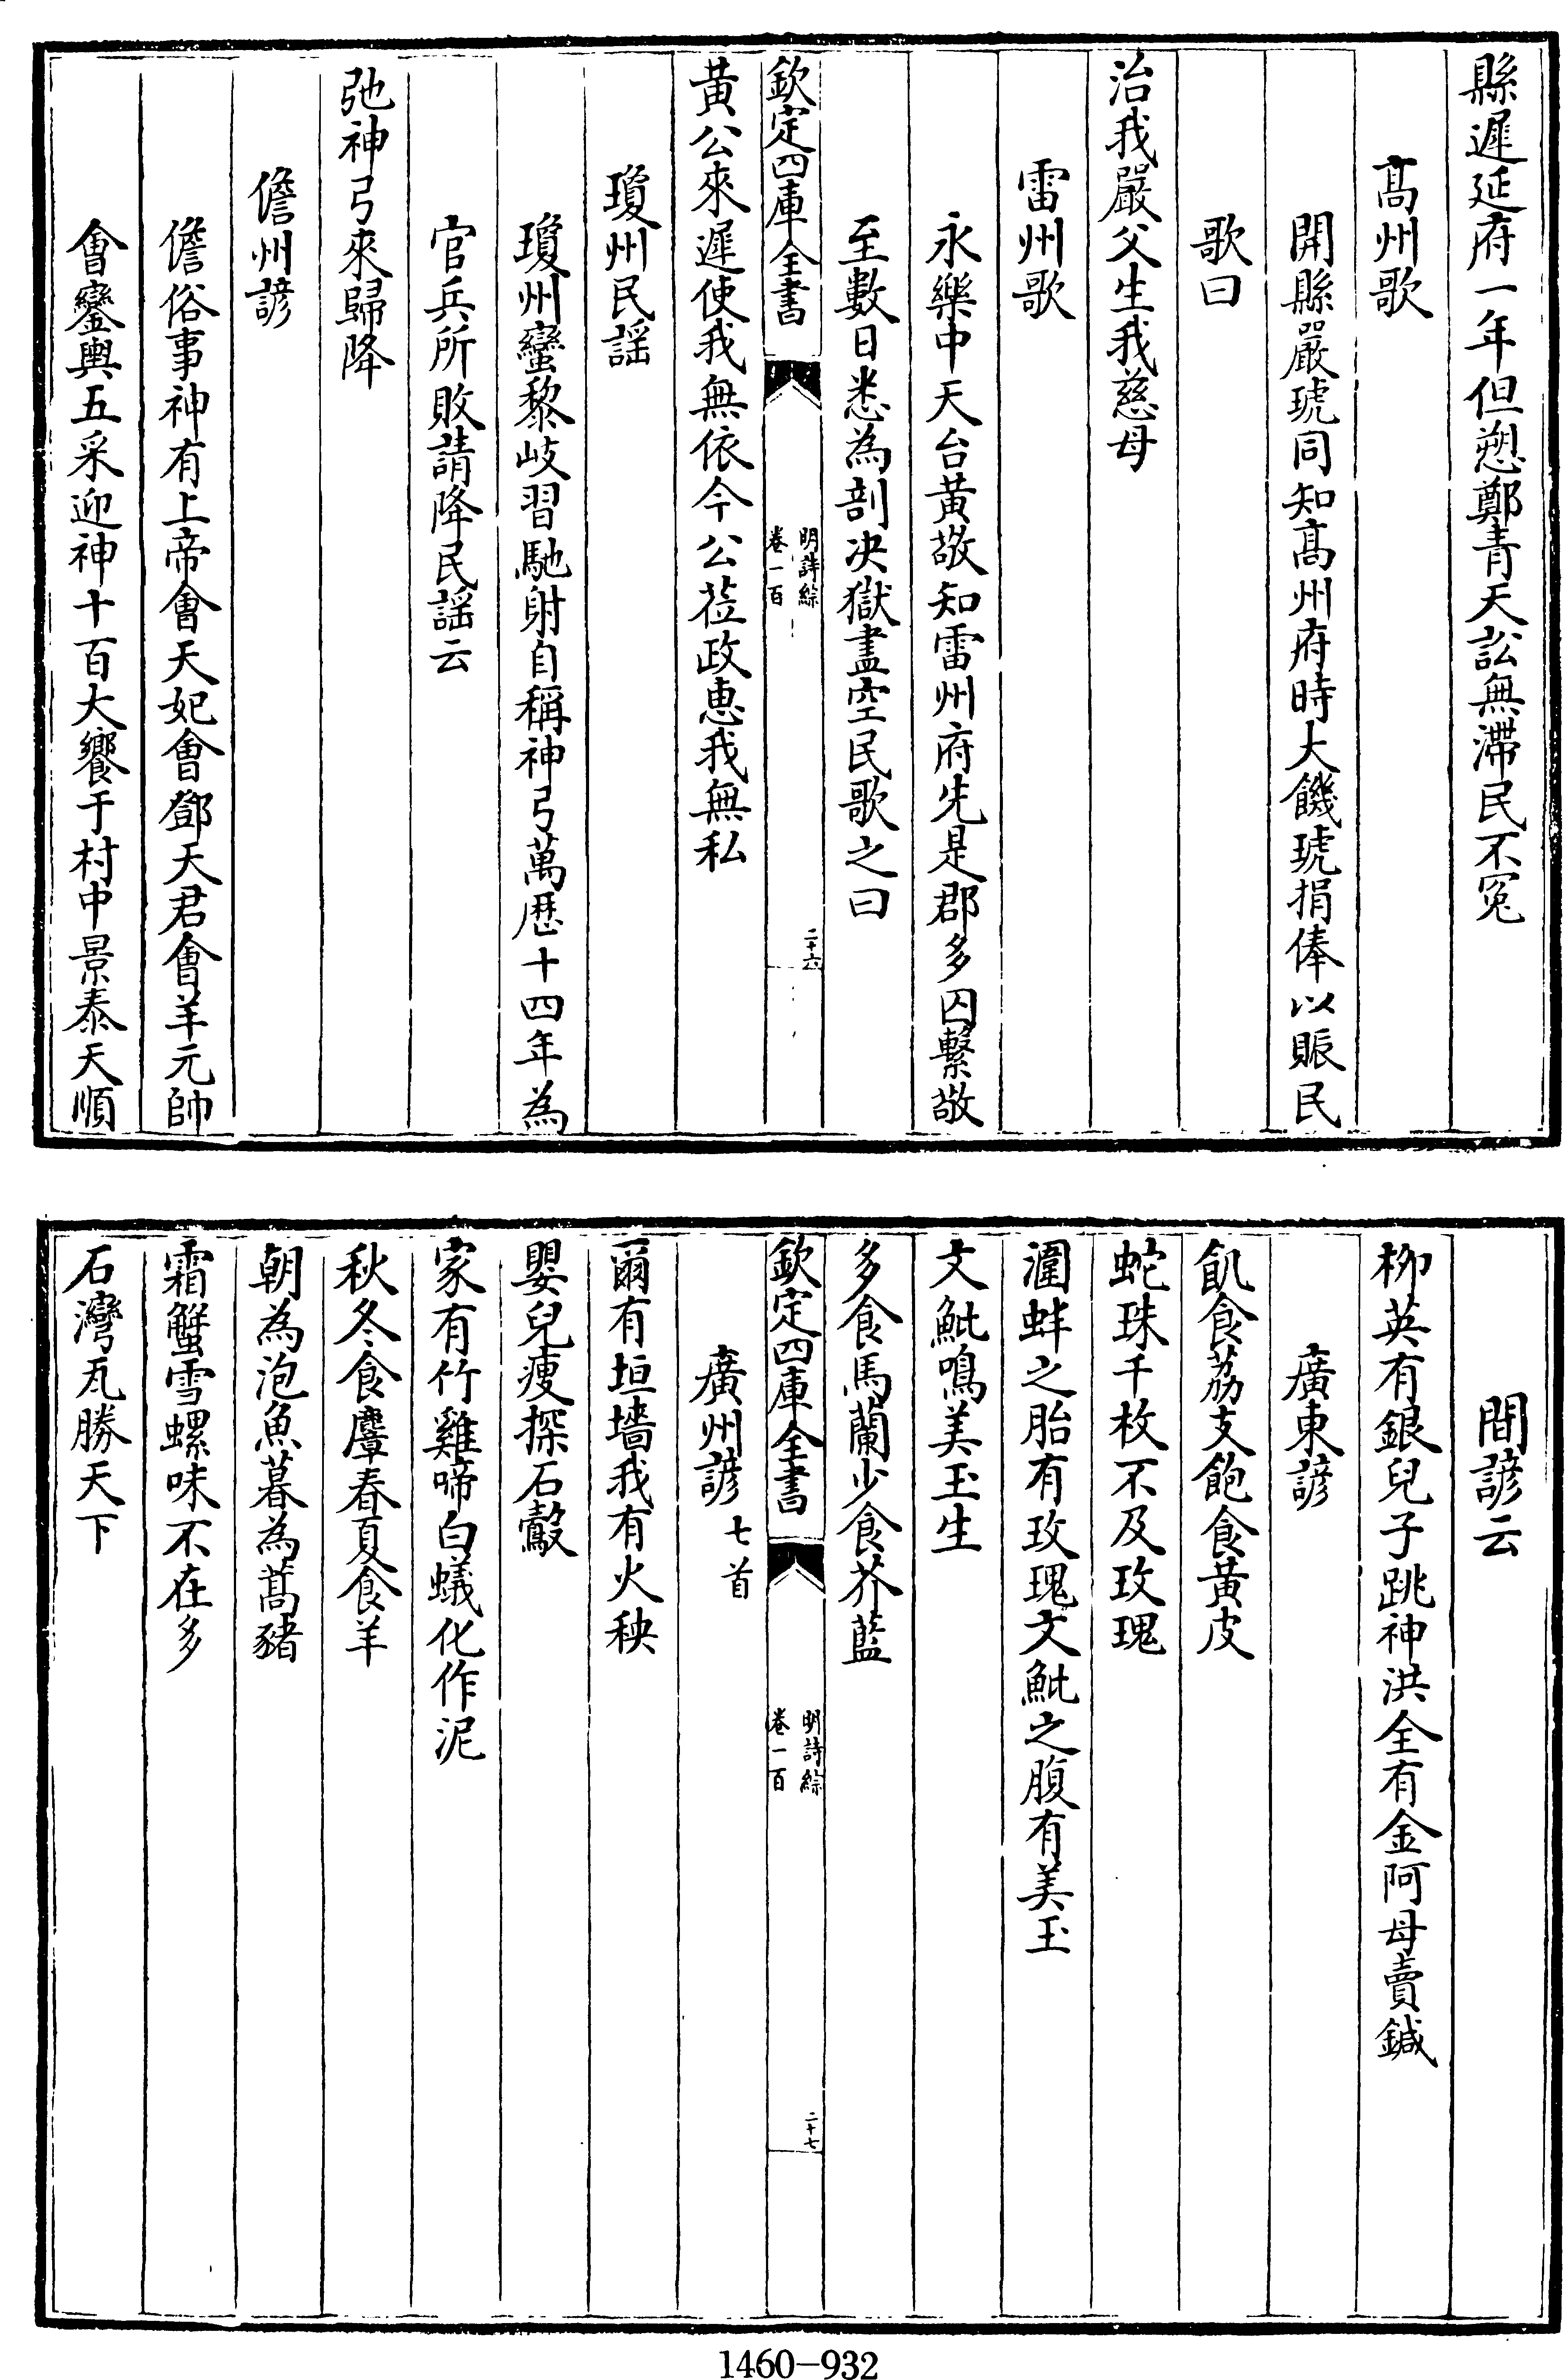 縣遲延府一年但愬鄭青天訟無滯民不冤
髙州歌
開縣嚴琥同知髙州府時大饑琥捐俸以賑民
歌曰
治我嚴父生我慈母
雷州歌
永樂中天台黄敬知雷州府先是郡多囚繫敬
至數日悉為剖决獄盡空民歌之曰
欽定四庫全書
明詩綜
卷一百
二十六
黄公來遲使我無依今公蒞政惠我無私
瓊州民謡
瓊州蠻黎岐習馳射自稱神弓萬厯十四年為
官兵所敗請降民謡云
弛神弓來歸降
儋州諺
儋俗事神有上帝會天妃會鄧天君會羊元帥
會鑾輿五采迎神十百大饗于村中景泰天順
間諺云
柳英有銀兒子跳神洪全有金阿母賣鍼
廣東諺
飢食荔支飽食黄皮
蛇珠千枚不及玫瑰
瀊蚌之胎有玫瑰文魮之腹有美玉
文魮鳴美玉生
多食馬蘭少食芥藍
欽定四庫全書
明詩綜
卷一百
二十七
廣州諺七首
爾有垣墻我有火秧
嬰兒瘦探石鷇
家有竹雞啼白蟻化作泥
秋冬食麞春夏食羊
朝為泡魚暮為蒿豬
霜蟹雪螺味不在多
石灣瓦勝天下
1460-932